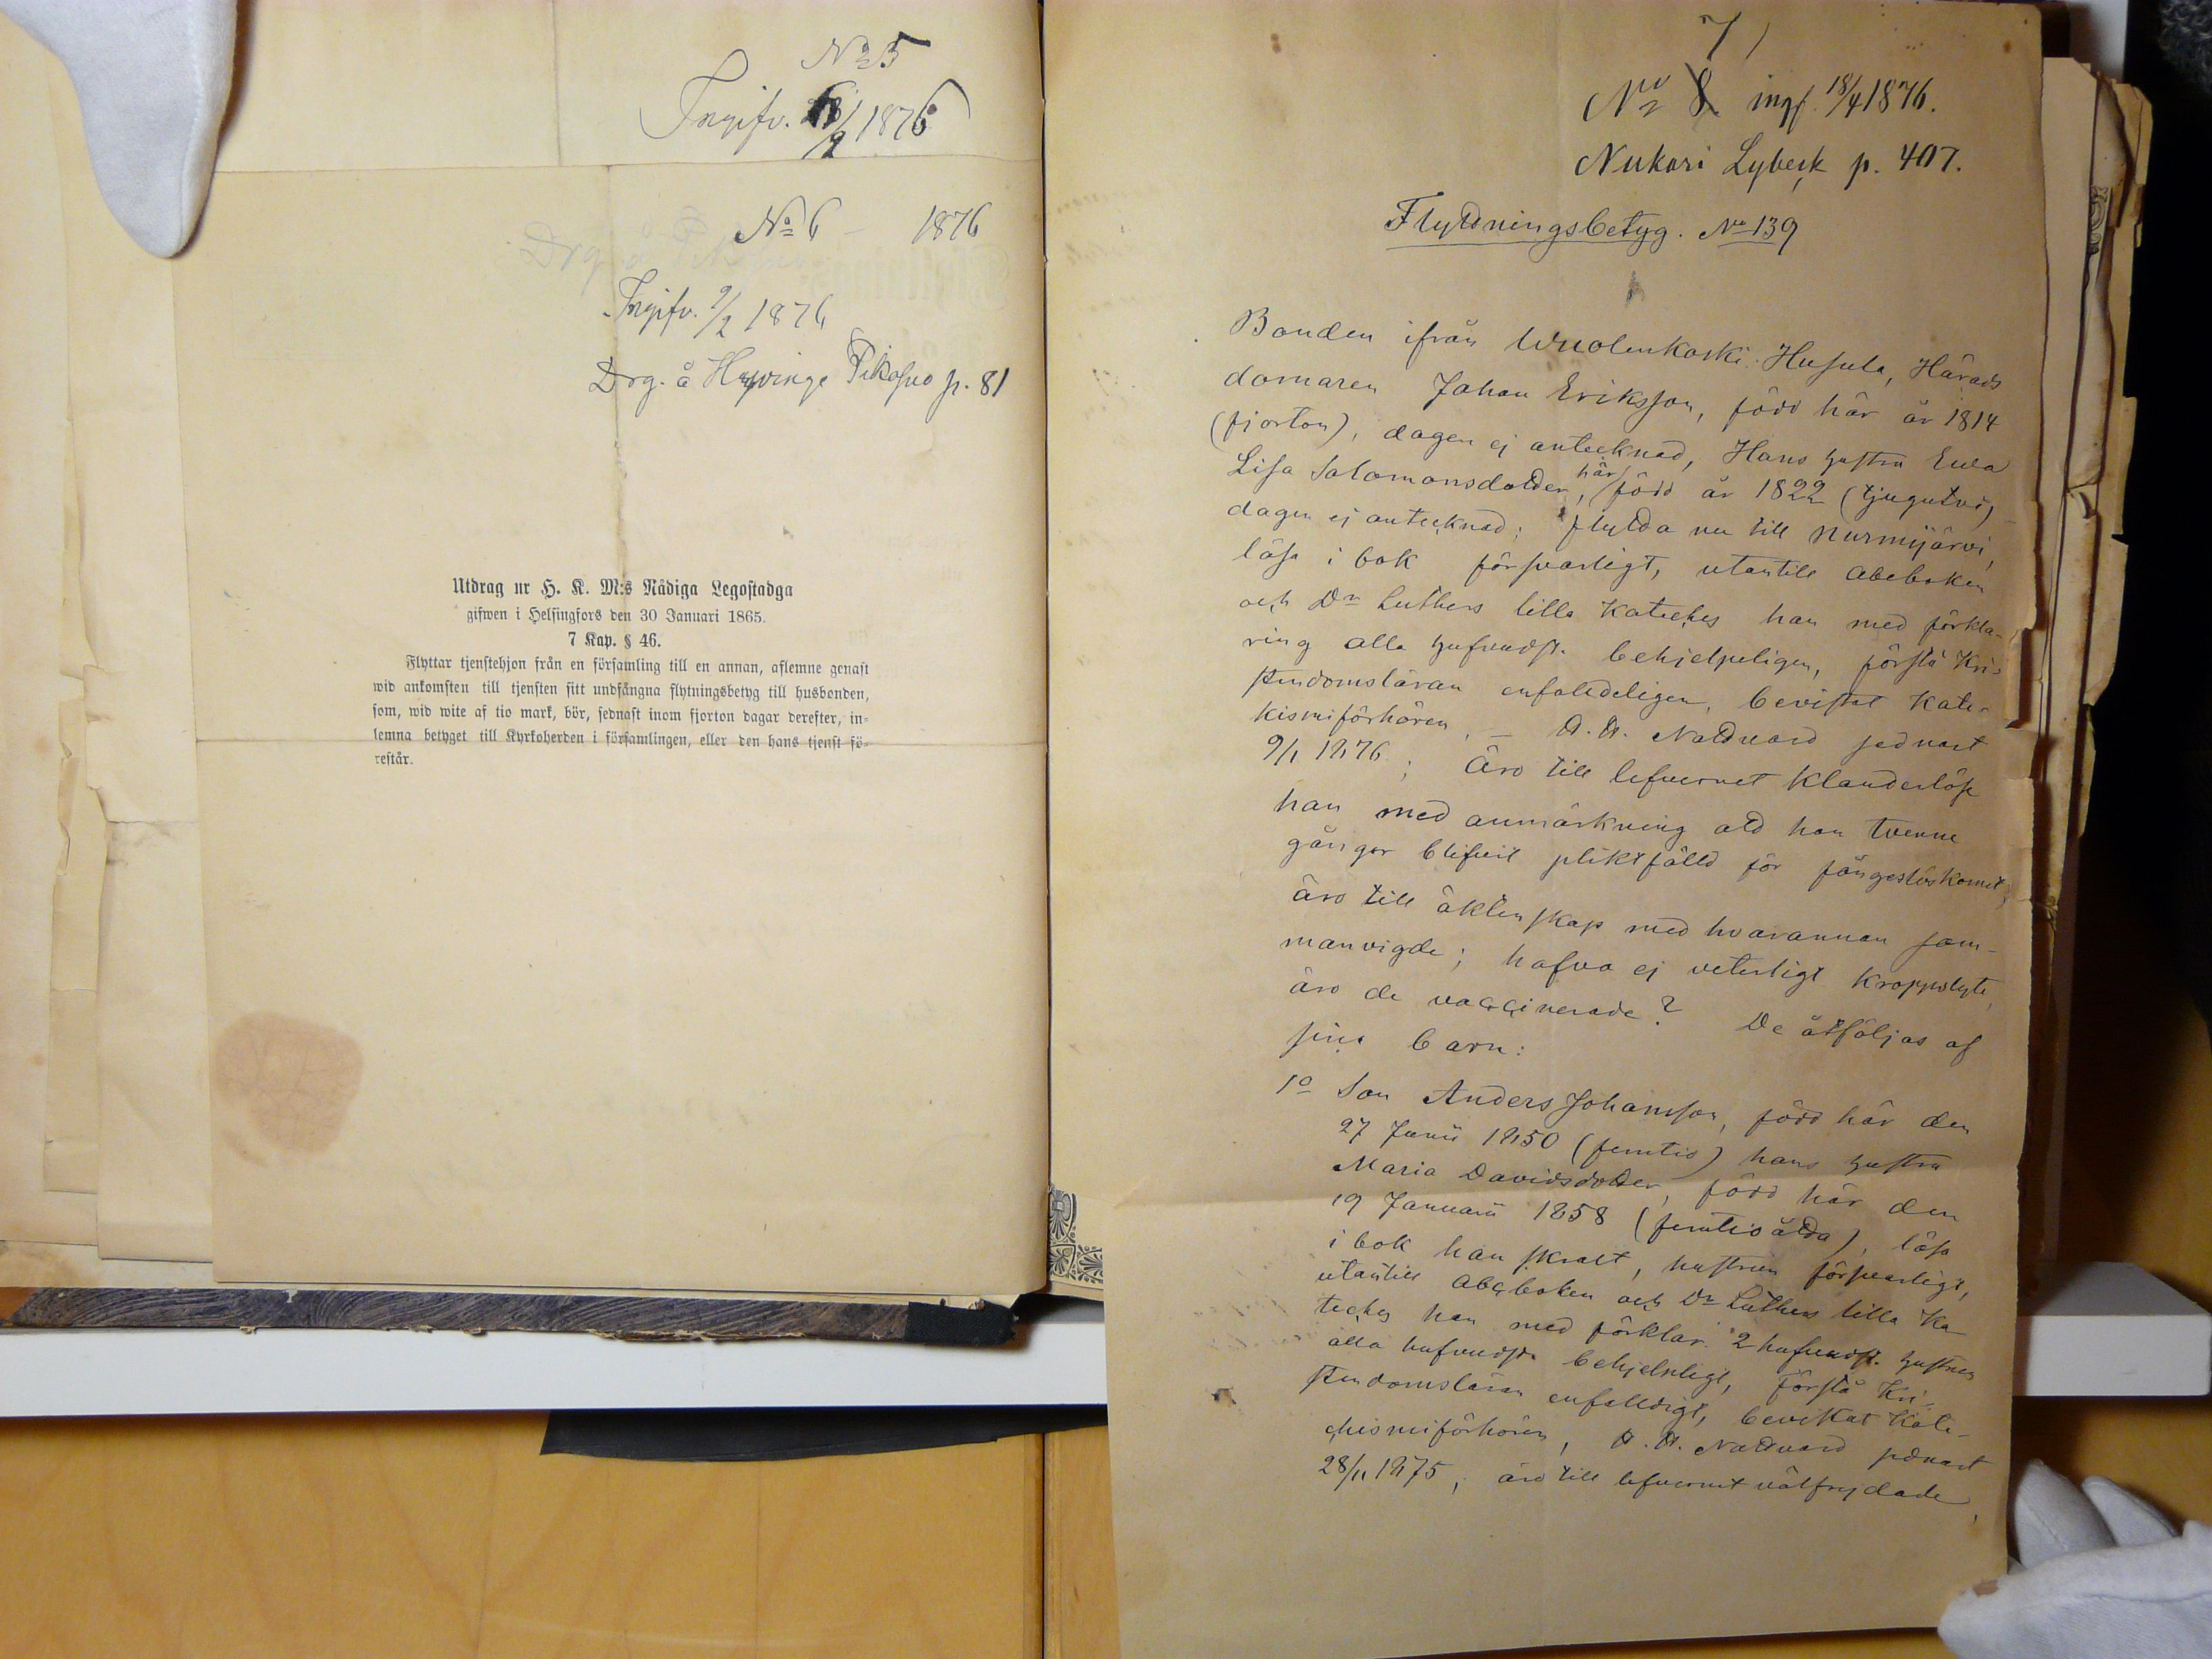 No 5
Ingifv. 1/2 1876
No 6 - 1876
Ingifv. 9/2 1876
Drg. å Hyvinge Pikospuo p. 81
Utdrag ur H. K. M:s Nådiga Legostadga
gifwen i Helsingfors den 30 Januari 1865.
7 Kap. § 46.
Flyttar tjenstehjon från en församling till en annan, aflemne genast
wid ankomsten till tjensten sitt undfångna flytningsbetyg till husbonden,
som, wid wite af tio mark, bör, sednast inom fjorton dagar derefter, in-
lemna betyget till Kyrkoherden i församlingen, eller den hans tjenst fö-
restår.
7)
No 8 ingf. 18/4 1876.
Nukari Lybeck p. 407.
Flyttningsbetyg. No 139
Bonden ifrån Wuolenkoski Husula, Härads
domaren Johan Eriksson, född här år 1814
(fjorton), dagen ej antecknad, Hans hustru Eva
Lisa Salomonsdotter, här född år 1822 (tjugutvå)
dagen ej antecknad; flytta nu till Nurmijärvi,
läsa i bok försvarligt, utantill abcboken
och Dr Luthers lilla Kateches han med förkla-
ring alla hufvudst. behjelpeligen, förstå Kri-
stendomsläran enfaldeligen, bevistat Kate-
kismiförhören, - H. H. Nattvard sednast
9/1 1876; Äro till lefvernet klanderlöse
han med anmärkning att han tvenne
gånger blifvit pliktfälld för
äro till äktenskap med hvarannan sam-
manvigde; hafva ej veterligt kroppslyte,
äro de vaccinerade? De åtföljas af
sina barn:
1o Son Anders Johansson, född här den
27 Junii 1850 (femtio) hans hustru
Maria Davidsdotter, född här den
19 Januarii 1858 (femtioåtta), läsa
i bok han skralt, hustrun försvarligt,
utantill abcboken och Dr Luthers lilla Ka-
teches han med förklar. 2 hufvudst. hustrun
alla hufvudst. behjelpligt, förstå Kri-
stendomsläran enfaldigt, bevistat Kate-
chismiförhören, H. H. Nattvard sednast
28/11 1875, äro till lefvernet välfrejdade,